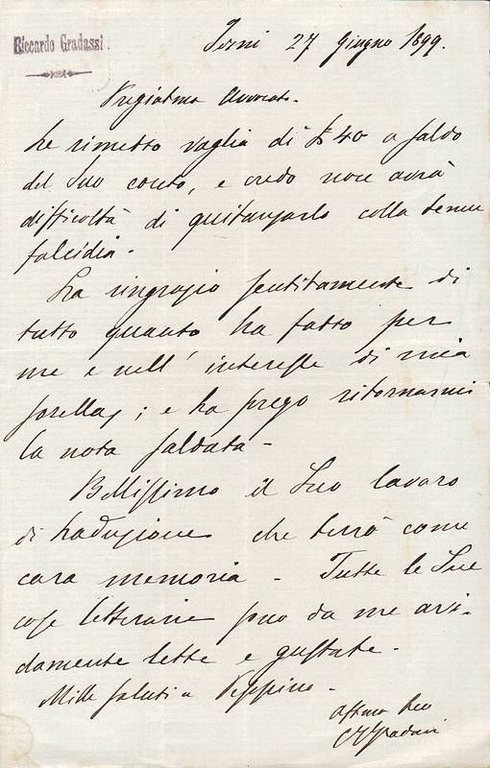 Riccardo Gradassi
Terni 27 Giugno 1899.
Pregiatmo Avvocato.
Le rimetto vaglia di £ 40 a saldo
del Suo conto, e credo non avrà
difficoltà di quitanzarlo colla tenue
falcidia.
La ringrazio sentitamente di
tutto quanto ha fatto per
me e nell' interesse di mia
sorella; e La prego ritornarmi
la nota saldata -
Bellissimo il Suo lavoro
di traduzione che terrò come
cara memoria - Tutte le Sue
cose letterarie sono da me avi-
damente lette e gustate -
Mille saluti a Peppino -
Affmo Suo
Gradassi